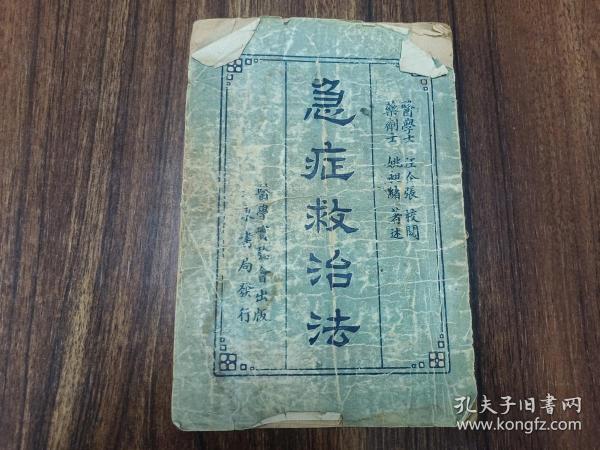 醫學士 汪企張 校閱
藥劑士 姚 緒 著述
急症救治法
醫學 會出版
東書局發行
孔夫子旧书网
www.kongfz.com